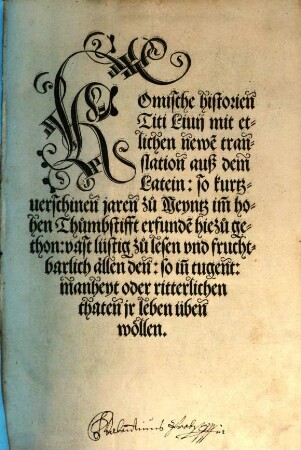 Romische historien
Titi Liuij mit et-
lichen newẽ tran-
slation auß dem
Latein: so kurtz-
uerschinen jaren zů Meyntz im ho-
hen Thůmbstifft erfundẽ hiezů ge-
thon: vast lüstig zů lesen vnd frucht-
barlich allen den: so in tugent:
manheyt oder ritterlichen
thaten jr leben üben
wöllen.